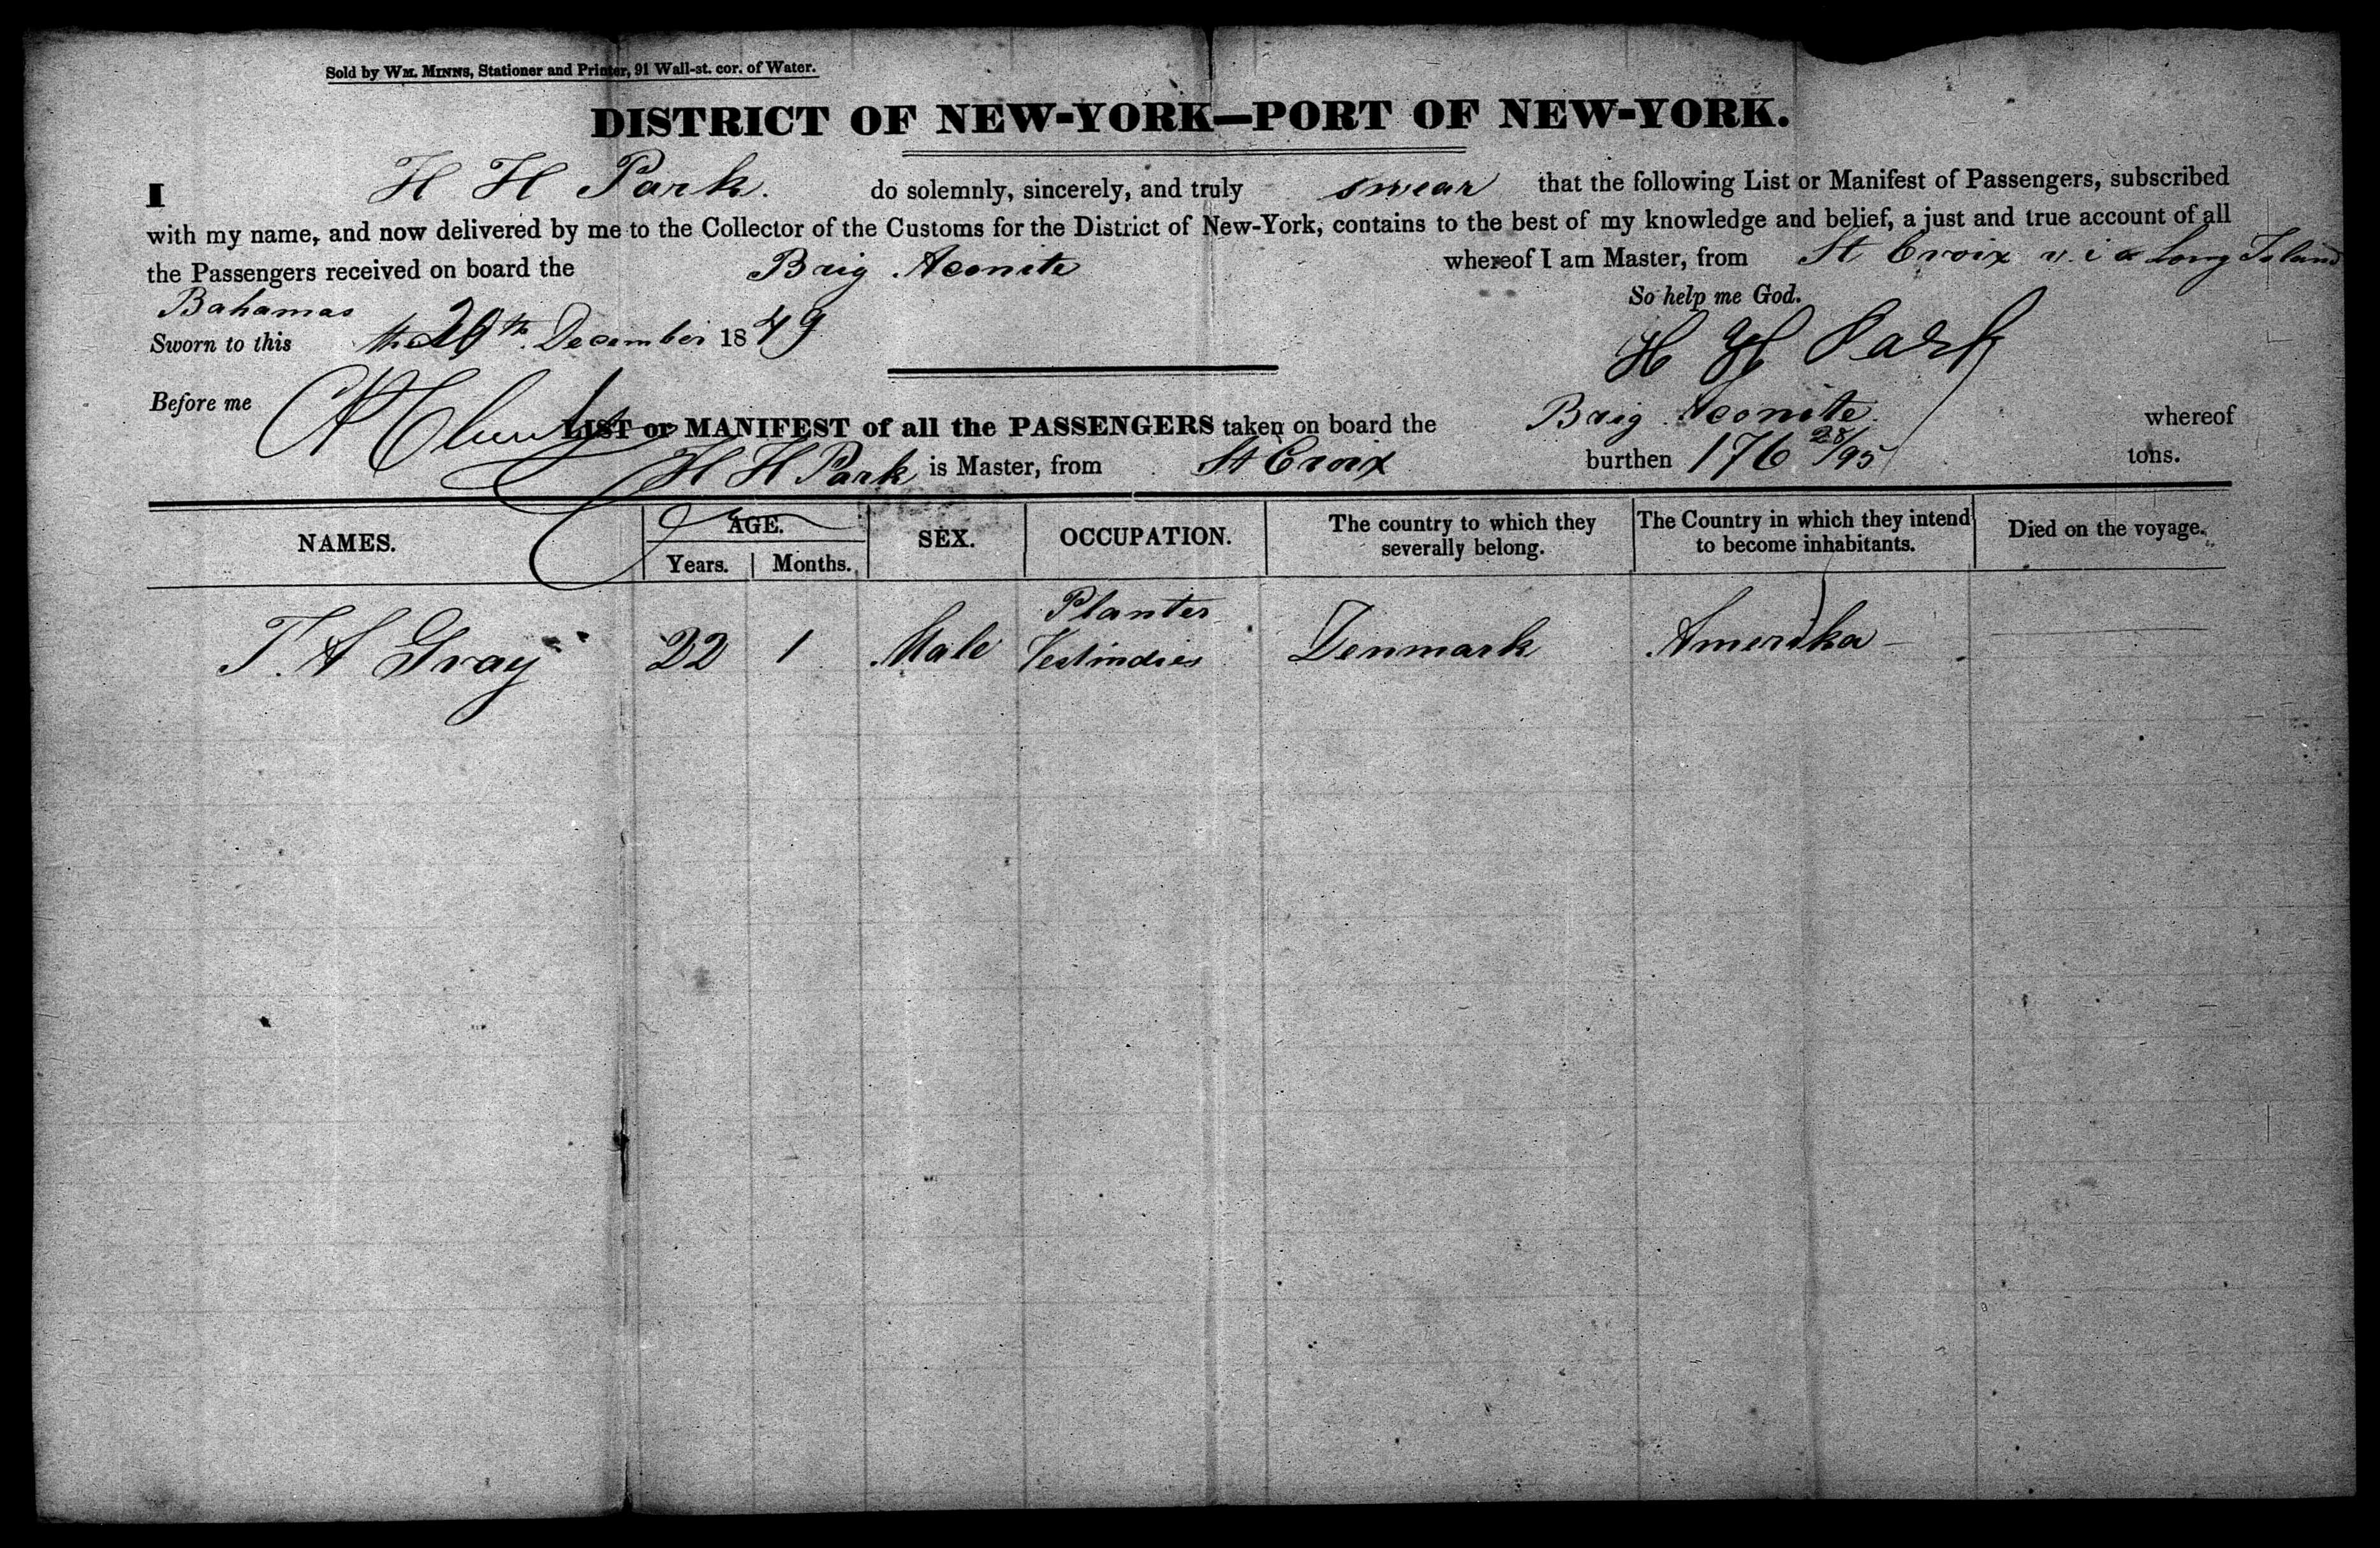 Sold by WM. MINNS, Stationer and Printer, 91 Wall-st. cor. of Water.
DISTRICT OF NEW-YORK—PORT OF NEW-YORK.
I H H Park. do solemnly, sincerely, and truly swear that the following List or Manifest of Passengers, subscribed
with my name, and now delivered by me to the Collector of the Customs for the District of New-York, contains to the best of my knowledge and belief, a just and true account of all
the Passengers received on board the Brig Aconite whereof I am Master, from St Croix via Long Island
Bahamas So help me God.
Sworn to this the th December 1849
H H Park
Before me
LIST or MANIFEST of all the PASSENGERS taken on board the Brig Aconite whereof
H H Park is Master, from St Croix burthen 176 28/95 tons.
NAMES. AGE. Years. Months. SEX. OCCUPATION. The country to which they severally belong. The Country in which they intend to become inhabitants. Died on the voyage.
T. A Gray 22 1 Male Planter Vestindies Denmark Amerika